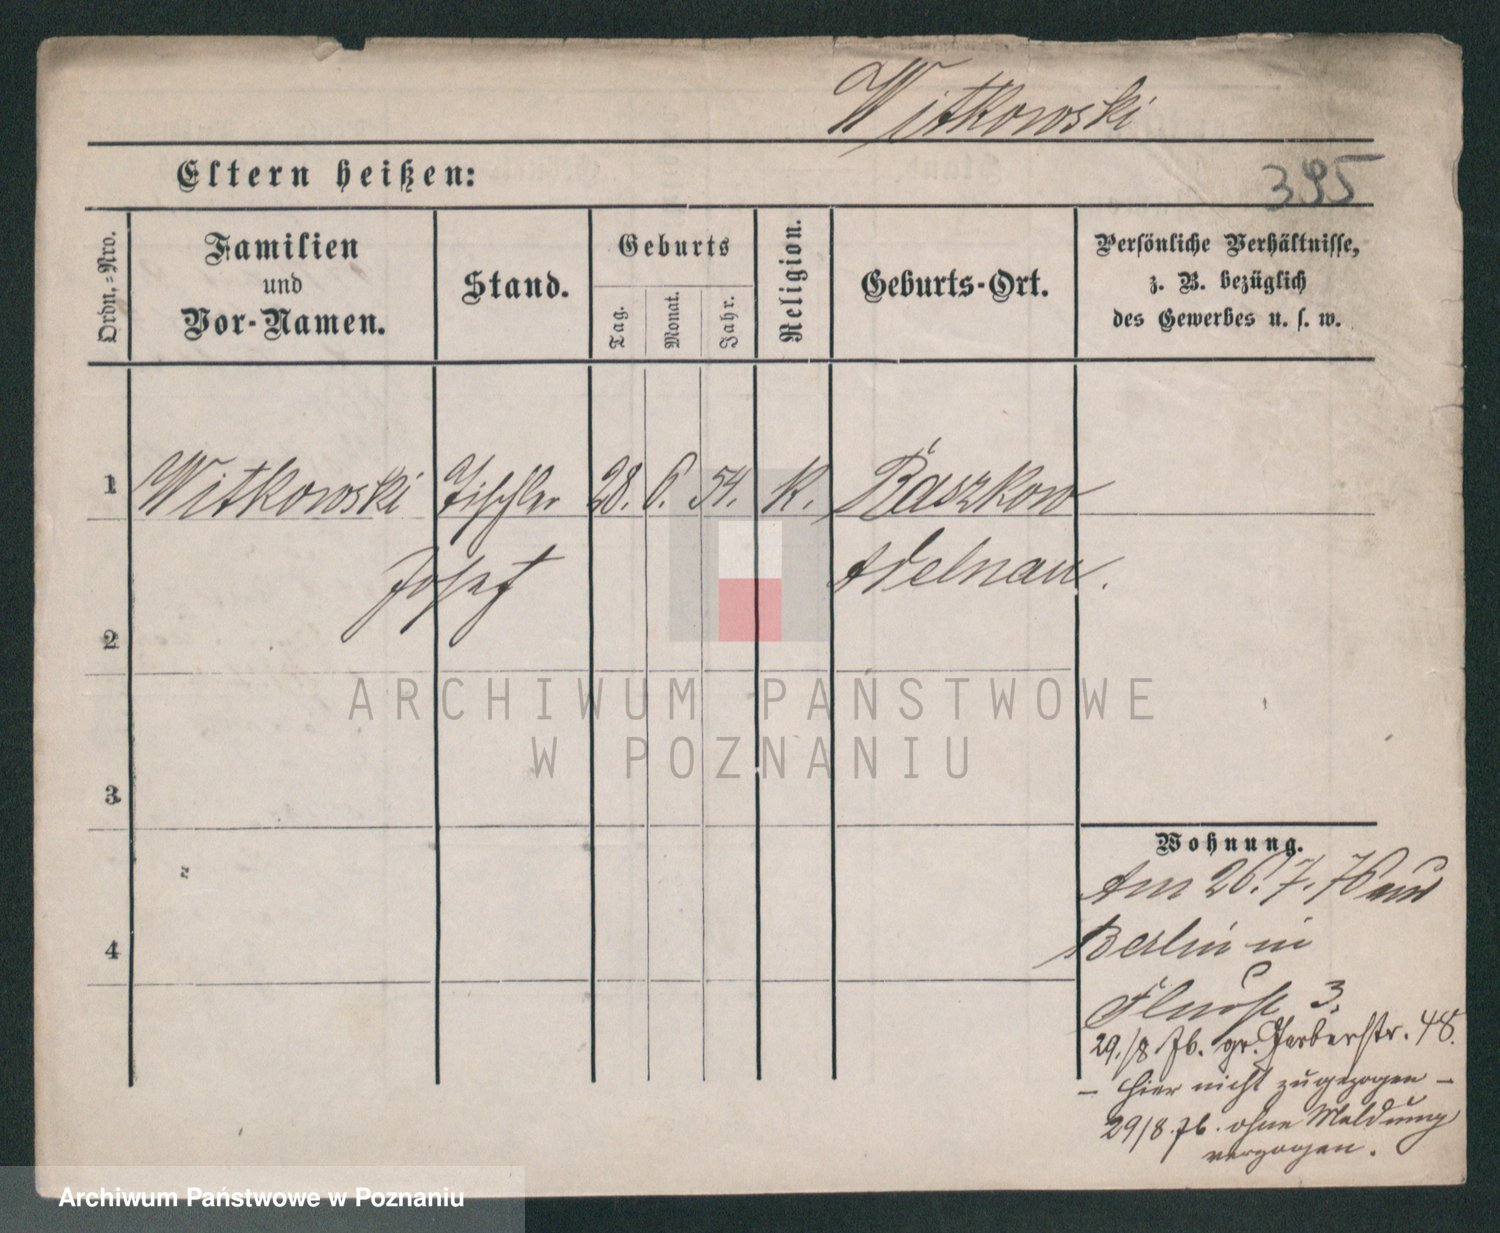 Witkowski
Eltern heißen:
395
Ordn.-Nro.
Familien
und
Vor-Namen.
Stand.
Geburts
Tag.
Monat.
Jahr.
Religion.
Geburts-Ort.
Persönliche Verhältnisse,
z. B. bezüglich
des Gewerbes u. s. w.
1 Witkowski Tischler 28. 6. 54. K. Baszkow
Josef Adelnau.
2
3
4
Wohnung.
Am 26.7.76 aus
Berlin in
3.
29./8 76. gr. Gerberstr. 48.
– hier nicht zugezogen –
29/8.76. ohne Meldung
verzogen.
ARCHIWUM PAŃSTWOWE
W POZNANIU
Archiwum Państwowe w Poznaniu